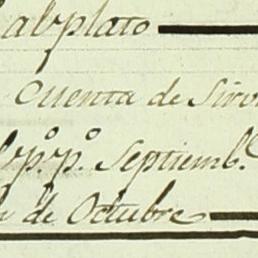 al plato
Cuenta de Siro
p.º p.º Septiemb.
de Octubre